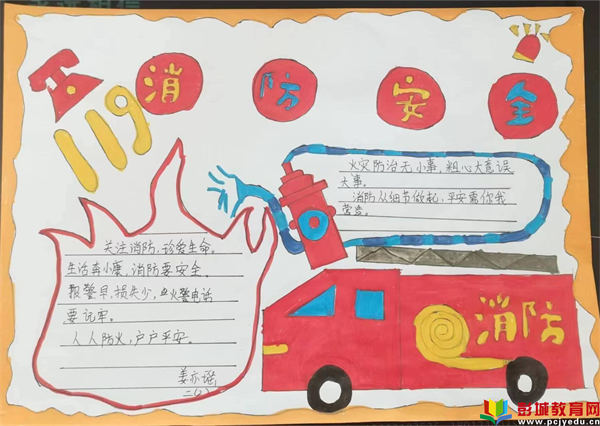 消防安全
119
火灾防治无小事,粗心大意误
大事。
消防从细节做起,平安需你我
营造。
关注消防,珍爱生命。
生活奔小康,消防要安全,
报警早,损失少,火警电话
要记牢。
人人防火,户户平安。
姜亦瑶
消防
彭城教育网
www.pcjyedu.cn